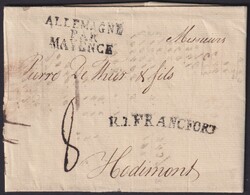 ALLEMAGNE
PAR
MAYENCE
Monsieur
Pierre De Thier & fils
R.1. FRANCFORT
8
Hodimont